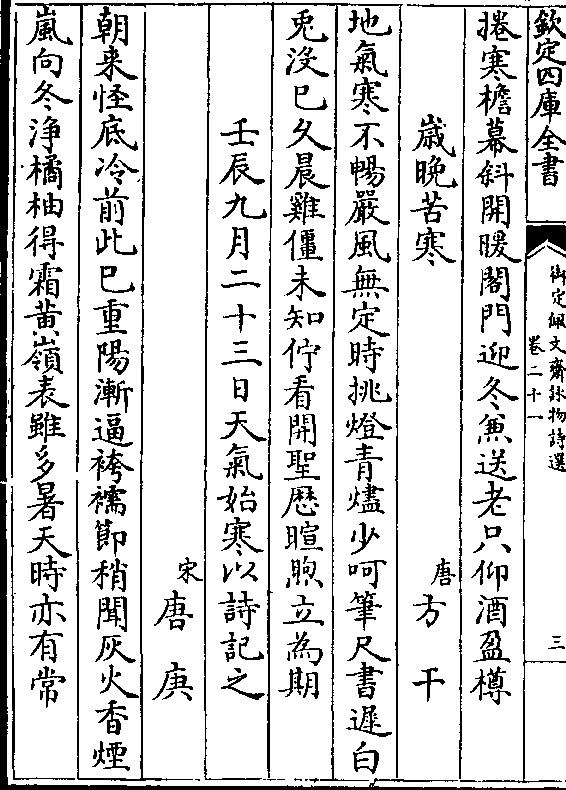 欽定四庫全書
御定佩文齋詠物詩選
卷二十一
三
捲寒檐幕斜開暖閣門迎冬兼送老只仰酒盈樽
歲晚苦寒
唐方干
地氣寒不暢嚴風無定時挑燈青燼少呵筆尺書遲白
兎沒已久晨雞僵未知佇看開聖歴暄煦立為期
壬辰九月二十三日天氣始寒以詩記之
宋唐庚
朝来怪底冷前此已重陽漸逼袴襦節稍聞灰火香煙
嵐向冬淨橘柚得霜黄嶺表雖多暑天時亦有常